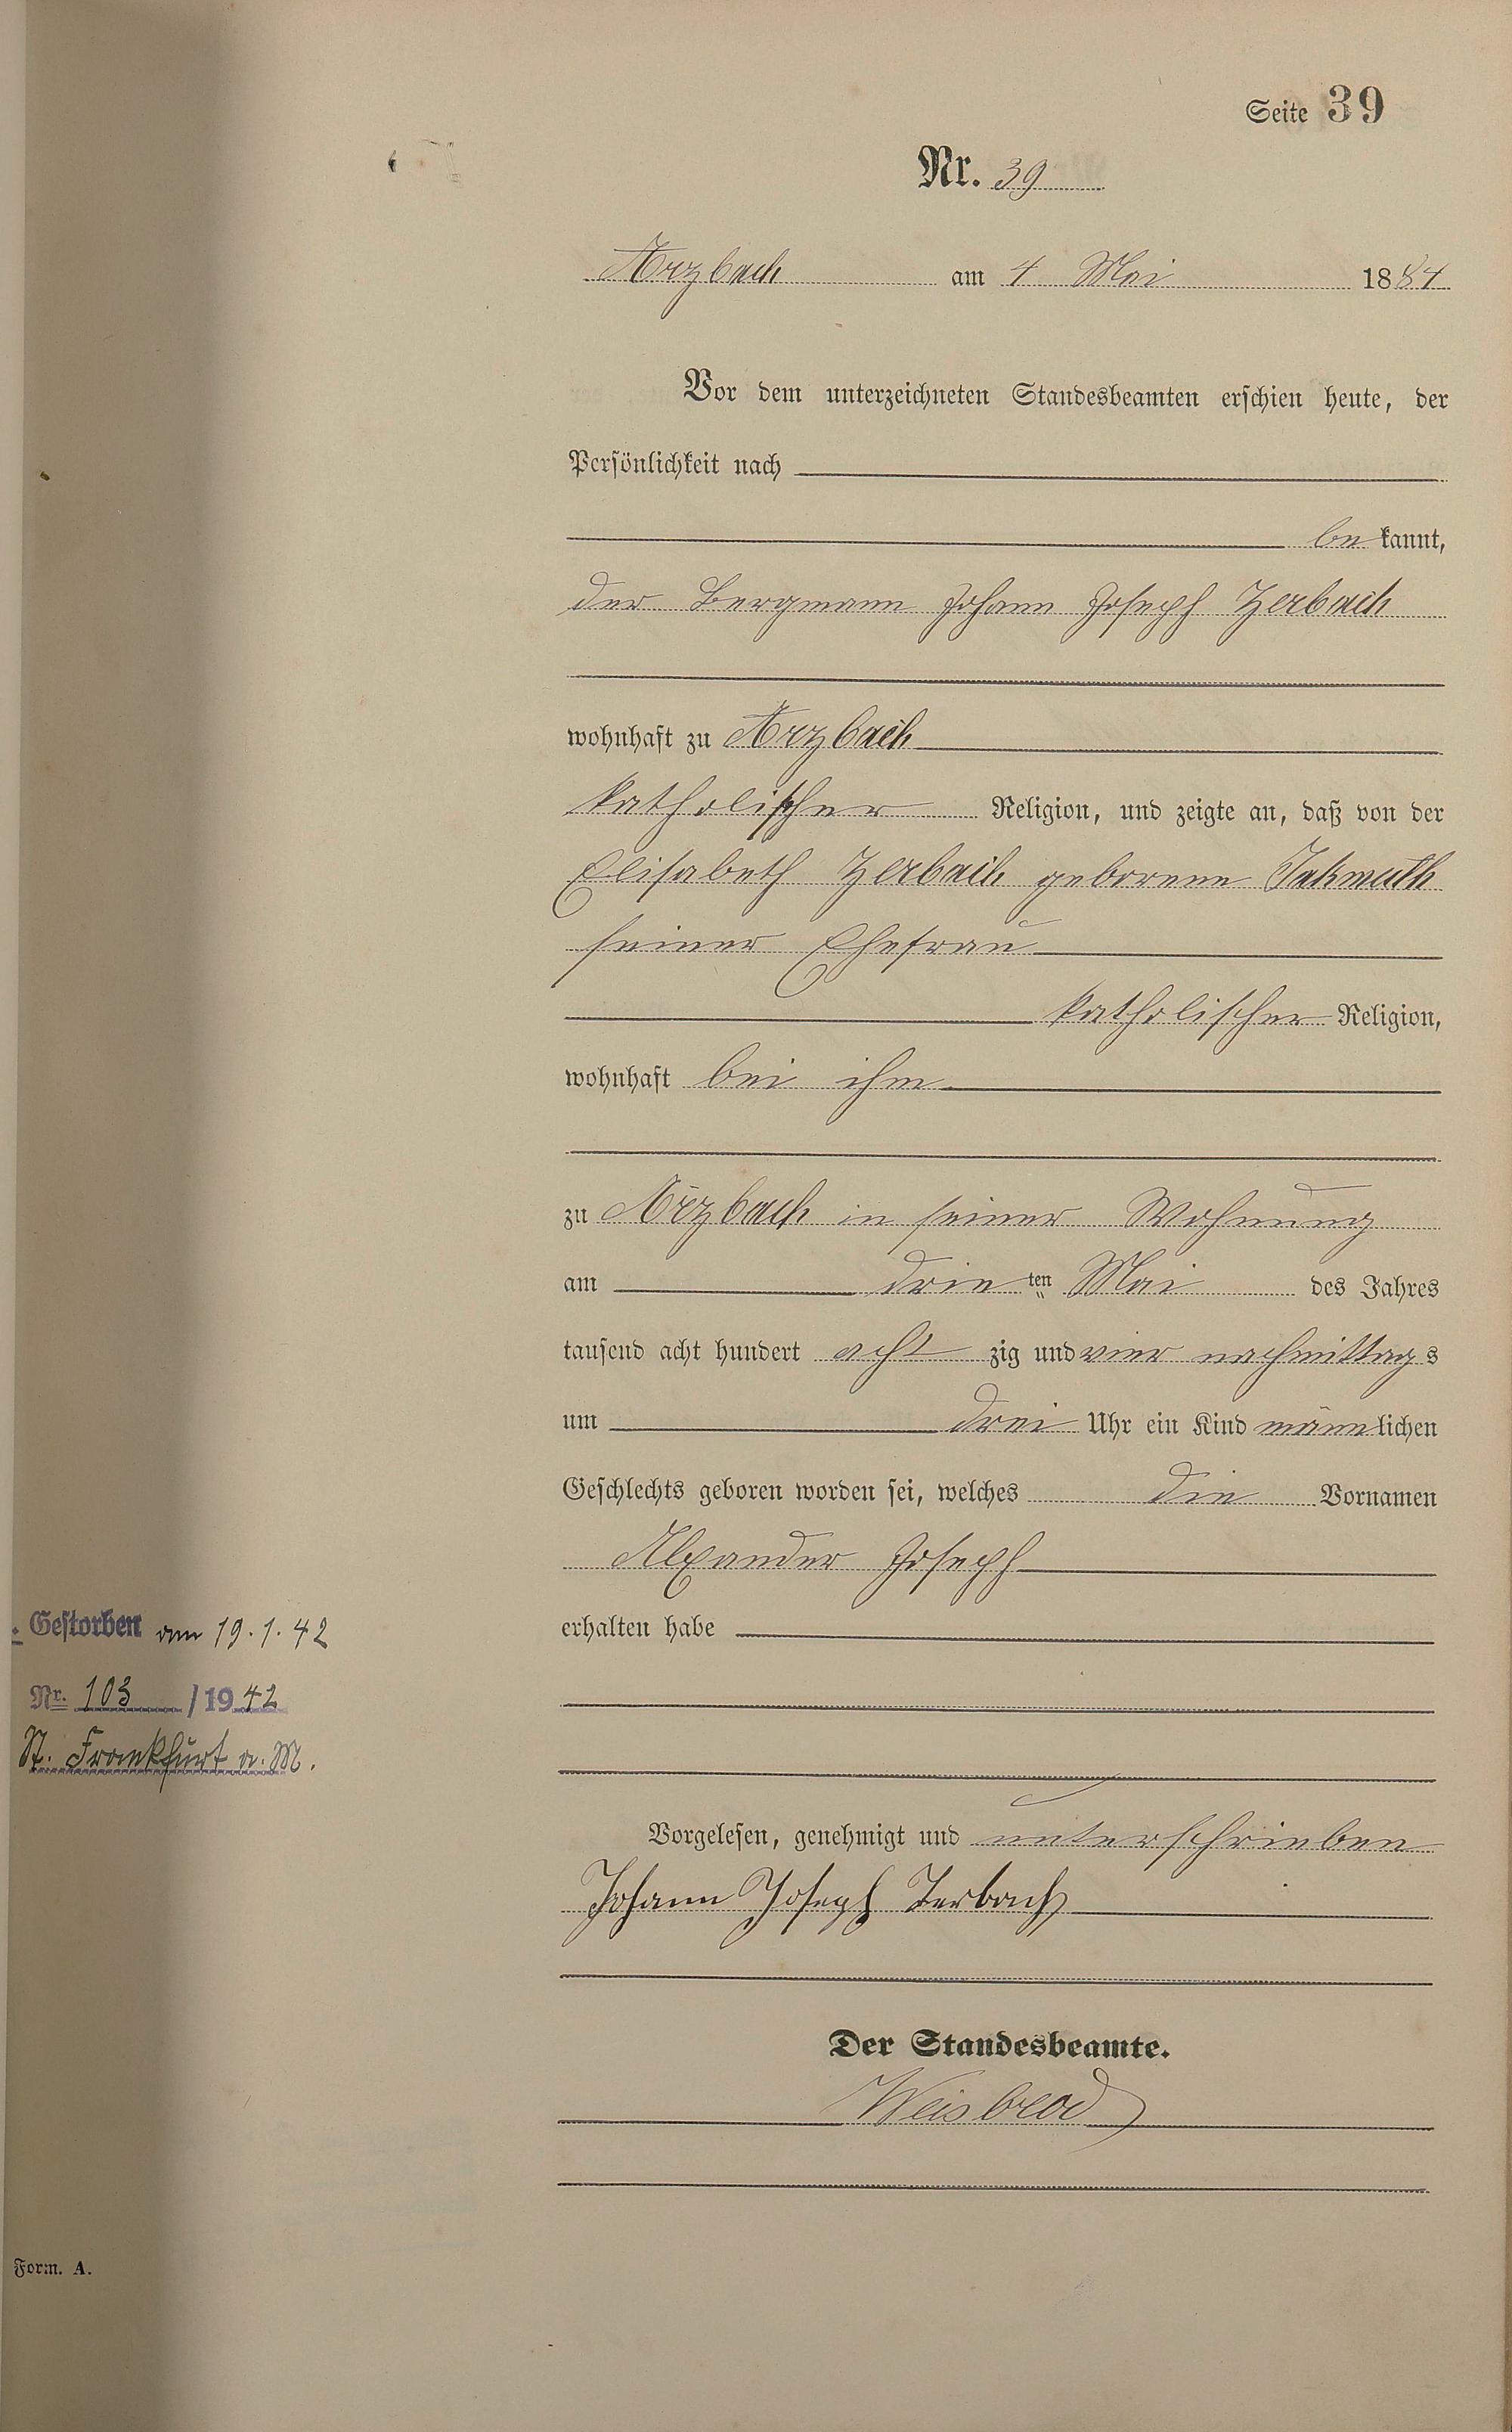 Seite 39
Nr. 39
Arzbach am 4 Mai 1884
Vor dem unterzeichneten Standesbeamten erschien heute, der
Persönlichkeit nach
be kannt,
der Bergmann Johann Joseph Zerbach
wohnhaft zu Arzbach
katholischer Religion, und zeigte an, daß von der
Elisabeth Zerbach geborene
seiner Ehefrau
katholischer Religion,
wohnhaft bei ihm
zu Arzbach in seiner Wohnung
am drie ten Mai des Jahres
tausend acht hundert acht zig und vier nachmittags
um drei Uhr ein Kind männlichen
Geschlechts geboren worden sei, welches die Vornamen
Alexander Joseph
erhalten habe
Gestorben am 19.1.42
Nr. 103 / 1942
St. Frankfurt a. M.
Vorgelesen, genehmigt und unterschrieben
Johann Joseph Zerbach
Der Standesbeamte.
Weisbrod
Form. A.